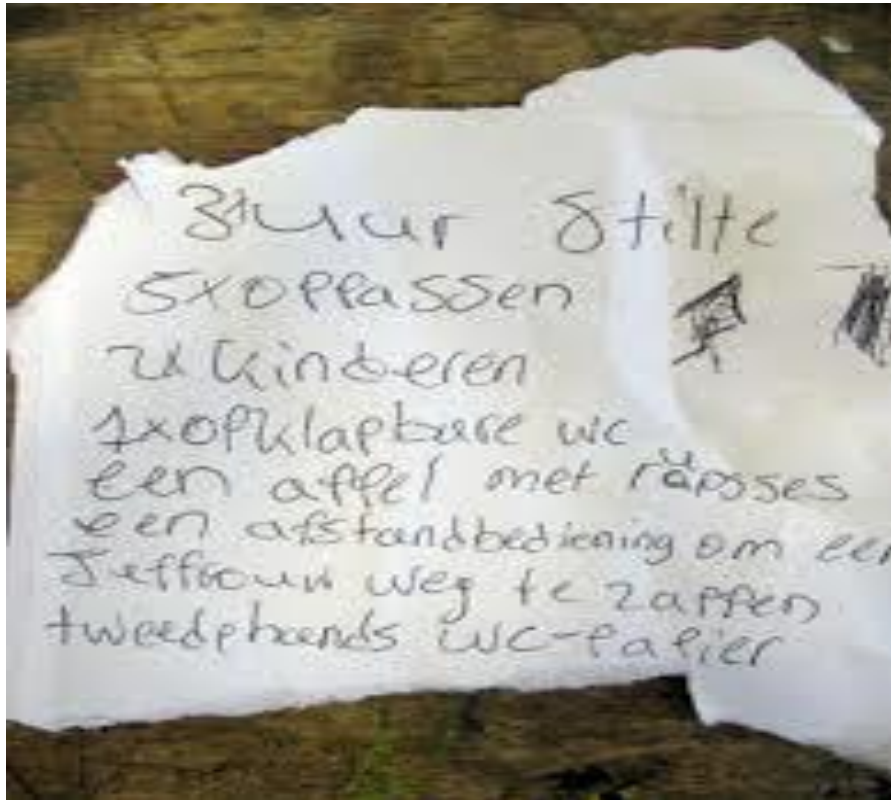 uur stilte
5x oppassen
kinderen
1x opklapbare wc
een appel met
een afstandbediening om een
Jeffrouw weg te zappen
tweedehands wc-papier